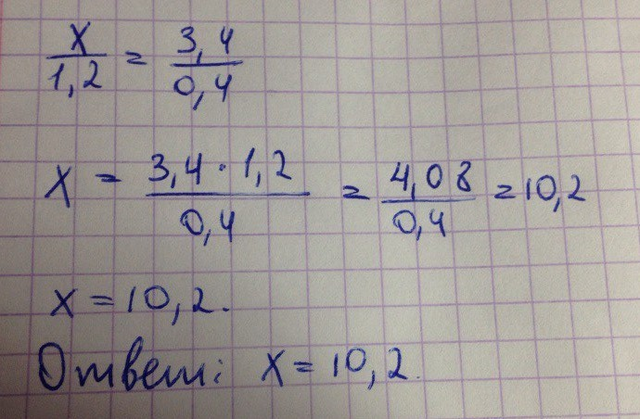 x/1,2 = 3,4/0,4
x = 3,4 · 1,2/0,4 = 4,08/0,4 = 10,2
x = 10,2.
Ответ: x = 10,2.